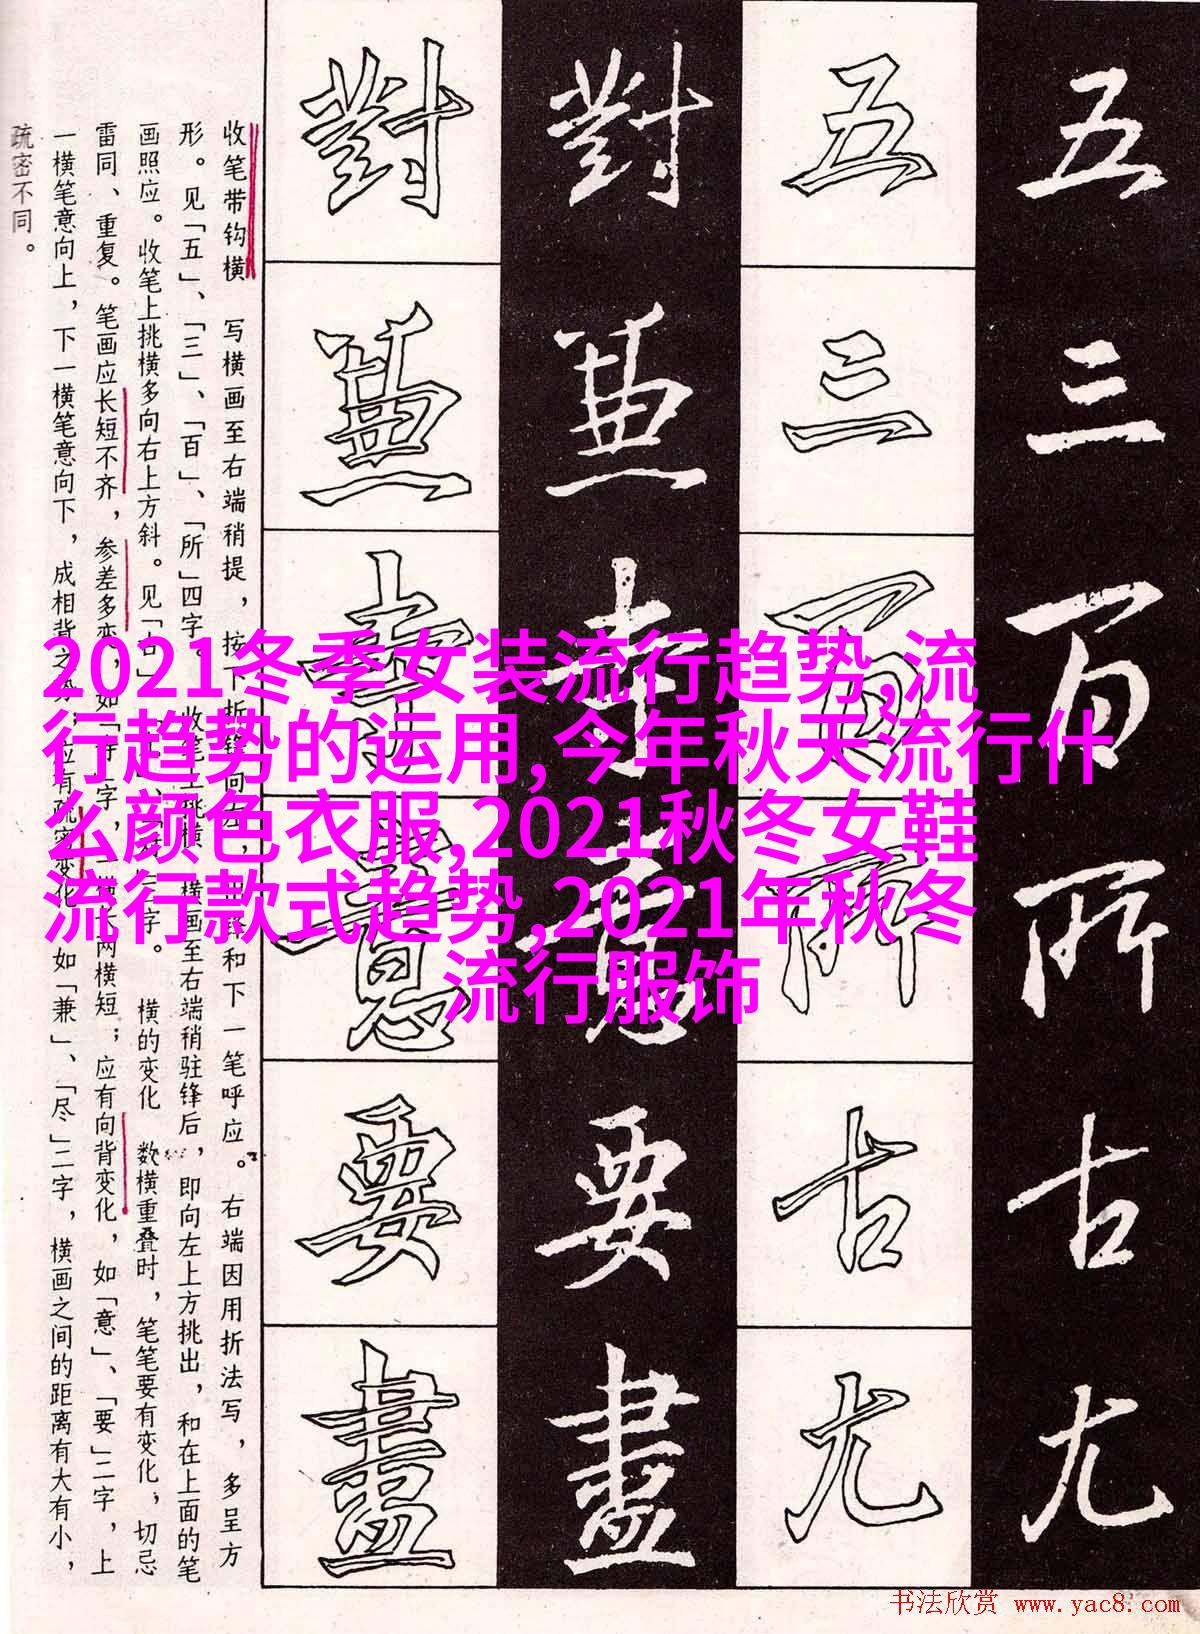 2021冬季女装流行趋势,流
行趋势的运用,今年秋天流行什
么颜色衣服,2021秋冬女鞋
流行款式趋势,2021年秋冬
流行服饰
五三百所古尤
五三百所古尤
對兼寺意要盡
對兼寺意要盡
收笔带钩横 写横画至右端稍提，按下折锋向左，出锋和下一笔呼应。右端因用折法写，多呈方
形。见「五」、「三」、「百」、「所」四字。 收笔上挑横 横画至右端稍驻锋后，即向左上方挑出，和在上面的笔
画照应。收笔上挑横多向右上方斜。见「古」三字。 横的变化 数横重叠时，笔笔要有变化，切忌
雷同、重复。笔画应长短不齐，参差多变，如「寺」字，一横长两横短；应有向背变化，如「意」、「要」二字，上
一横笔意向上，下一横笔意向下，成相背之势，应有疏密变化，如「兼」、「尽」二字，横画之间的距离有大有小，
疏密不同。
书法欣赏 www.yac8.com